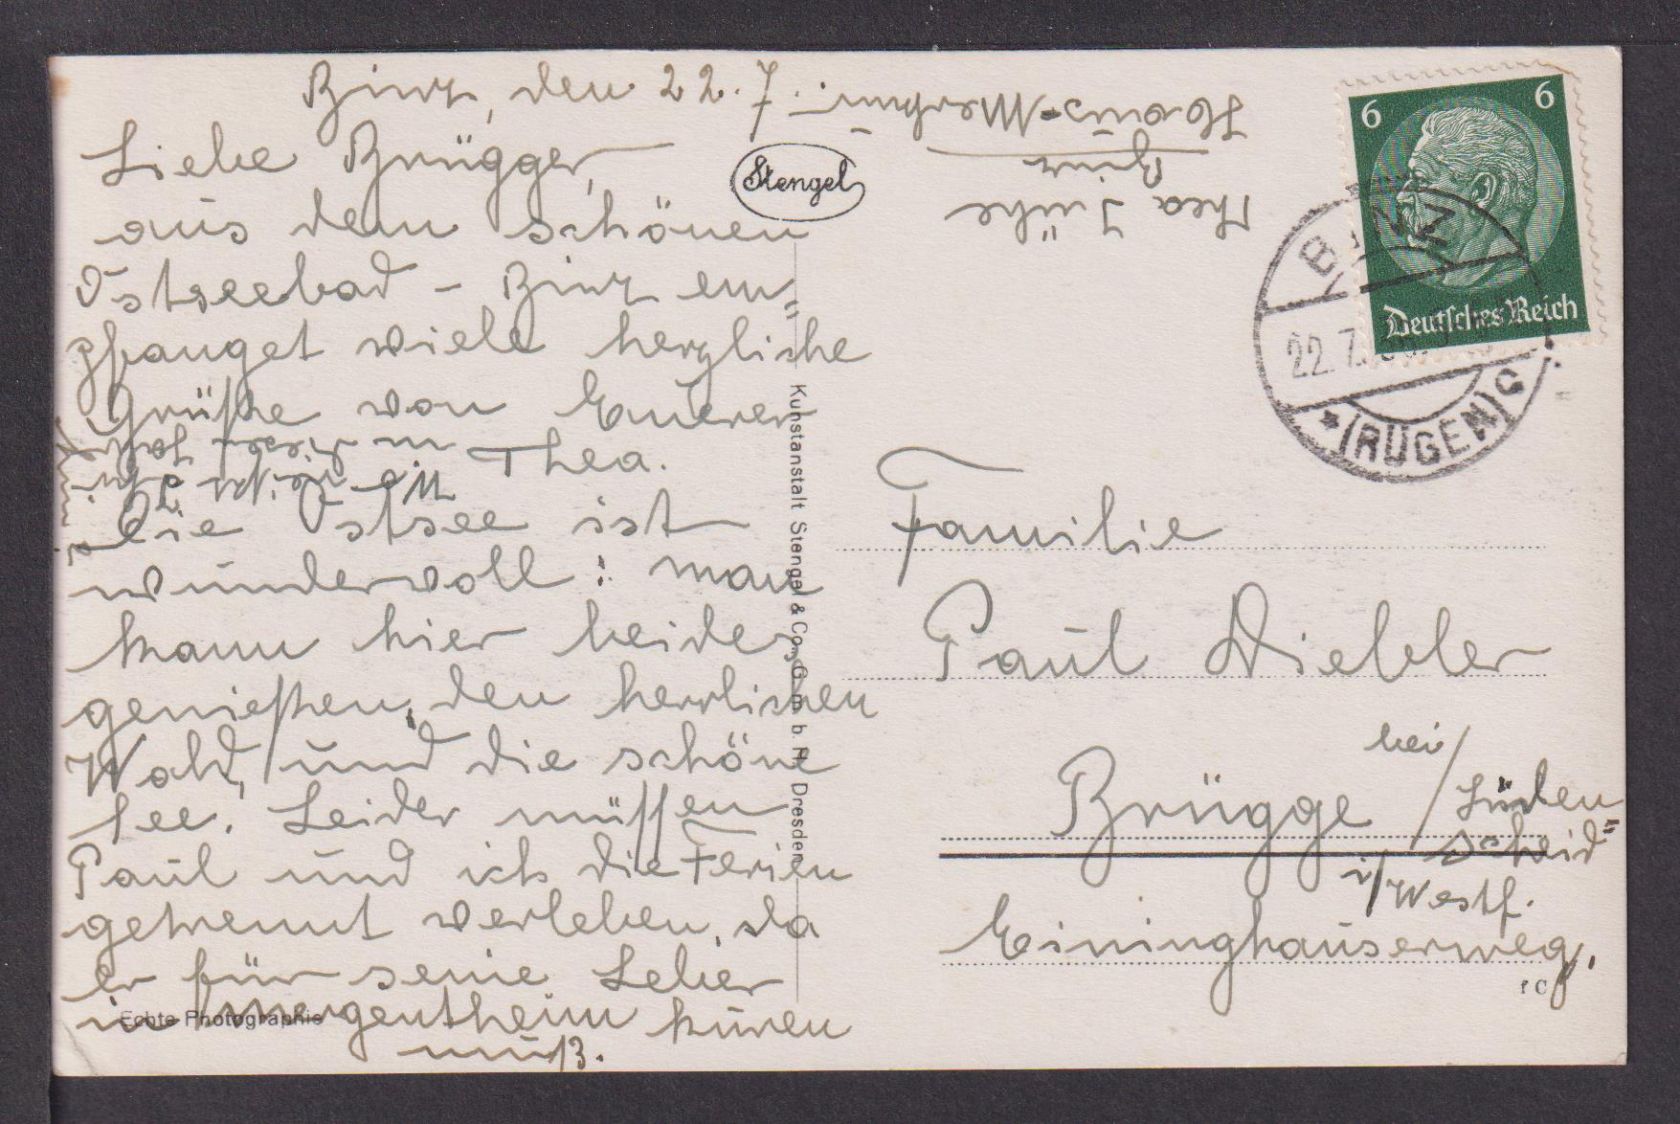 Binz, den 22. 7.
Liebe Brügger,
aus dem schönen
Ostseebad - Binz em„
pfanget viele herzliche
Grüße von Euerer
Thea.
Die Ostsee ist
wundervoll: man
kann hier beides
genießen, den herrlichen
Wald, und die schöne
See. Leider müssen
Paul und ich die Ferien
getrennt verleben, da
er für seine Leber
in Mergentheim kuren
muß.
Thea
Binz
Haus
Stengel
6 6
Deutsches Reich
BINZ
22.7.
*(RÜGEN) c
Kunstanstalt Stengel & Co., G. m. b. H., Dresden
Familie
Paul Diebler
Brügge bei/Lüden
scheid"
i/Westf.
Eininghauserweg.
Echte Photographie